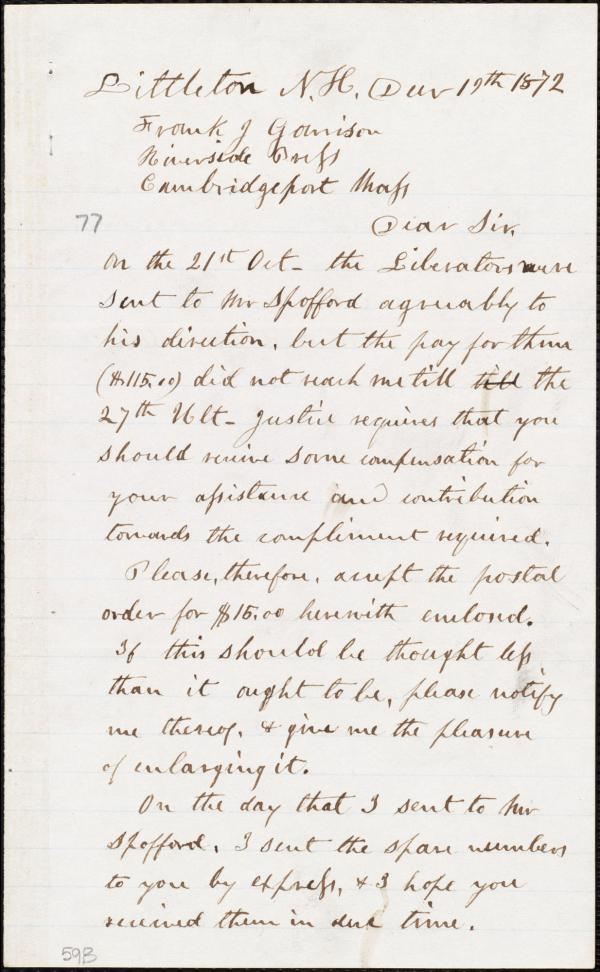 Littleton N.H. Decr 19th 1872
Frank J Garrison
Riverside Press
Cambridgeport Mass
77
Dear Sir.
On the 21st Oct - the Liberators were
sent to Mr Spofford agreeably to
his direction, but the pay for them
($115.00) did not reach me till till the
27th Ult - Justice requires that you
should receive some compensation for
your assistance and contribution
towards the compliment required.
Please, therefore, accept the postal
order for $15.00 herewith enclosed.
If this should be thought less
than it ought to be, please notify
me thereof, & give me the pleasure
of enlarging it.
On the day that I sent to Mr
Spofford, I sent the spare numbers
to you by express, & I hope you
received them in due time.
59B